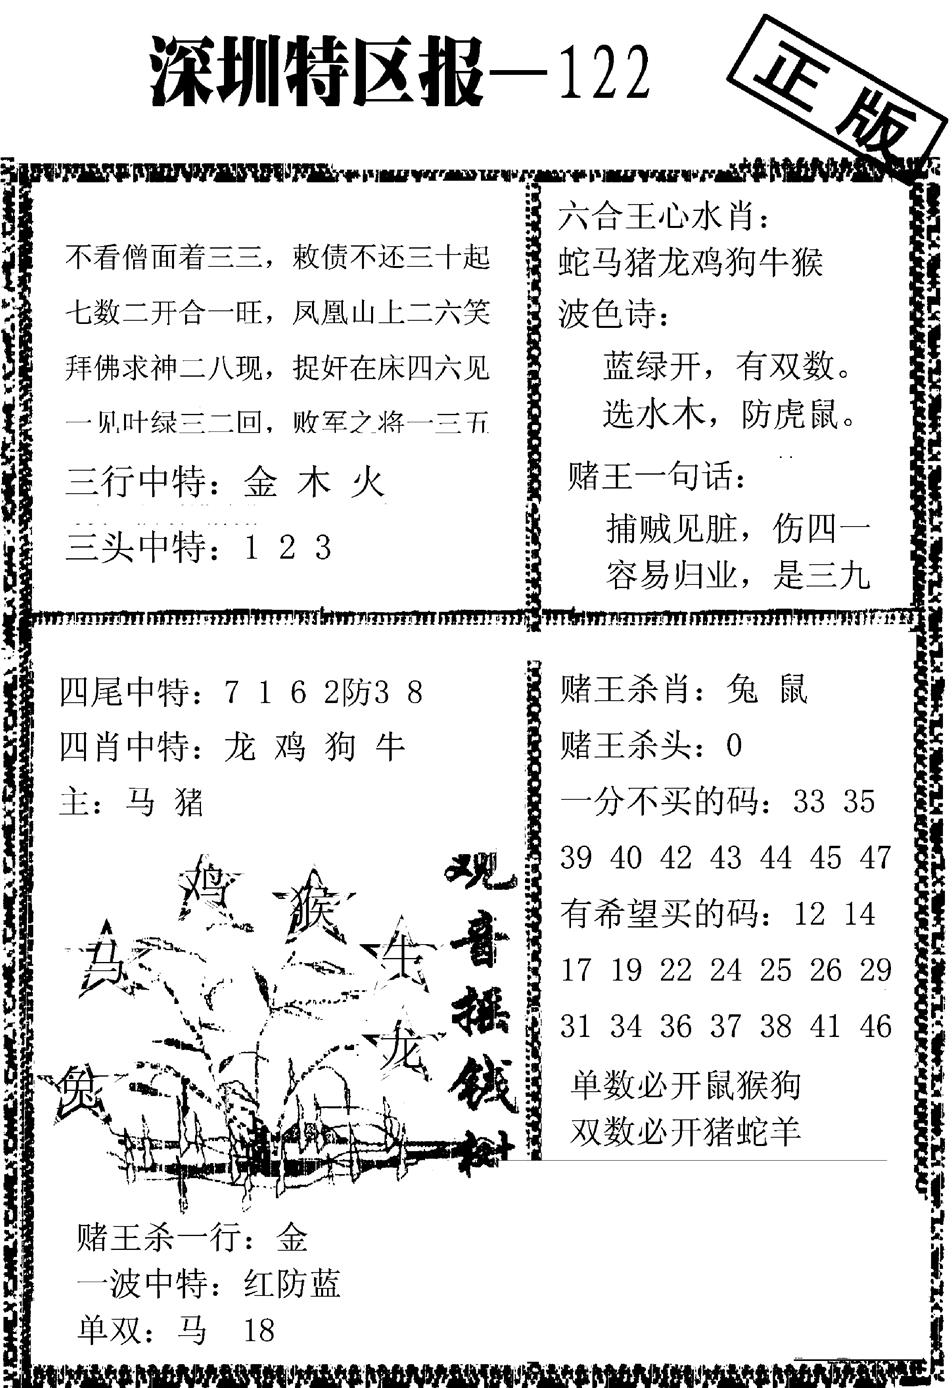 深圳特区报—122
正版
不看僧面着三三，敕债不还三十起
七数二开合一旺，凤凰山上二六笑
拜佛求神二八现，捉奸在床四六见
一见叶绿三二回，败军之将一三五
三行中特：金 木 火
三头中特：1 2 3
六合王心水肖：
蛇马猪龙鸡狗牛猴
波色诗：
蓝绿开，有双数。
选水木，防虎鼠。
赌王一句话：
捕贼见脏，伤四一
容易归业，是三九
四尾中特：7 1 6 2防3 8
四肖中特：龙 鸡 狗 牛
主：马 猪
鸡
猴
马
牛
龙
兔
观音摇钱树
赌王杀肖：兔 鼠
赌王杀头：0
一分不买的码：33 35
39 40 42 43 44 45 47
有希望买的码：12 14
17 19 22 24 25 26 29
31 34 36 37 38 41 46
单数必开鼠猴狗
双数必开猪蛇羊
赌王杀一行：金
一波中特：红防蓝
单双：马 18